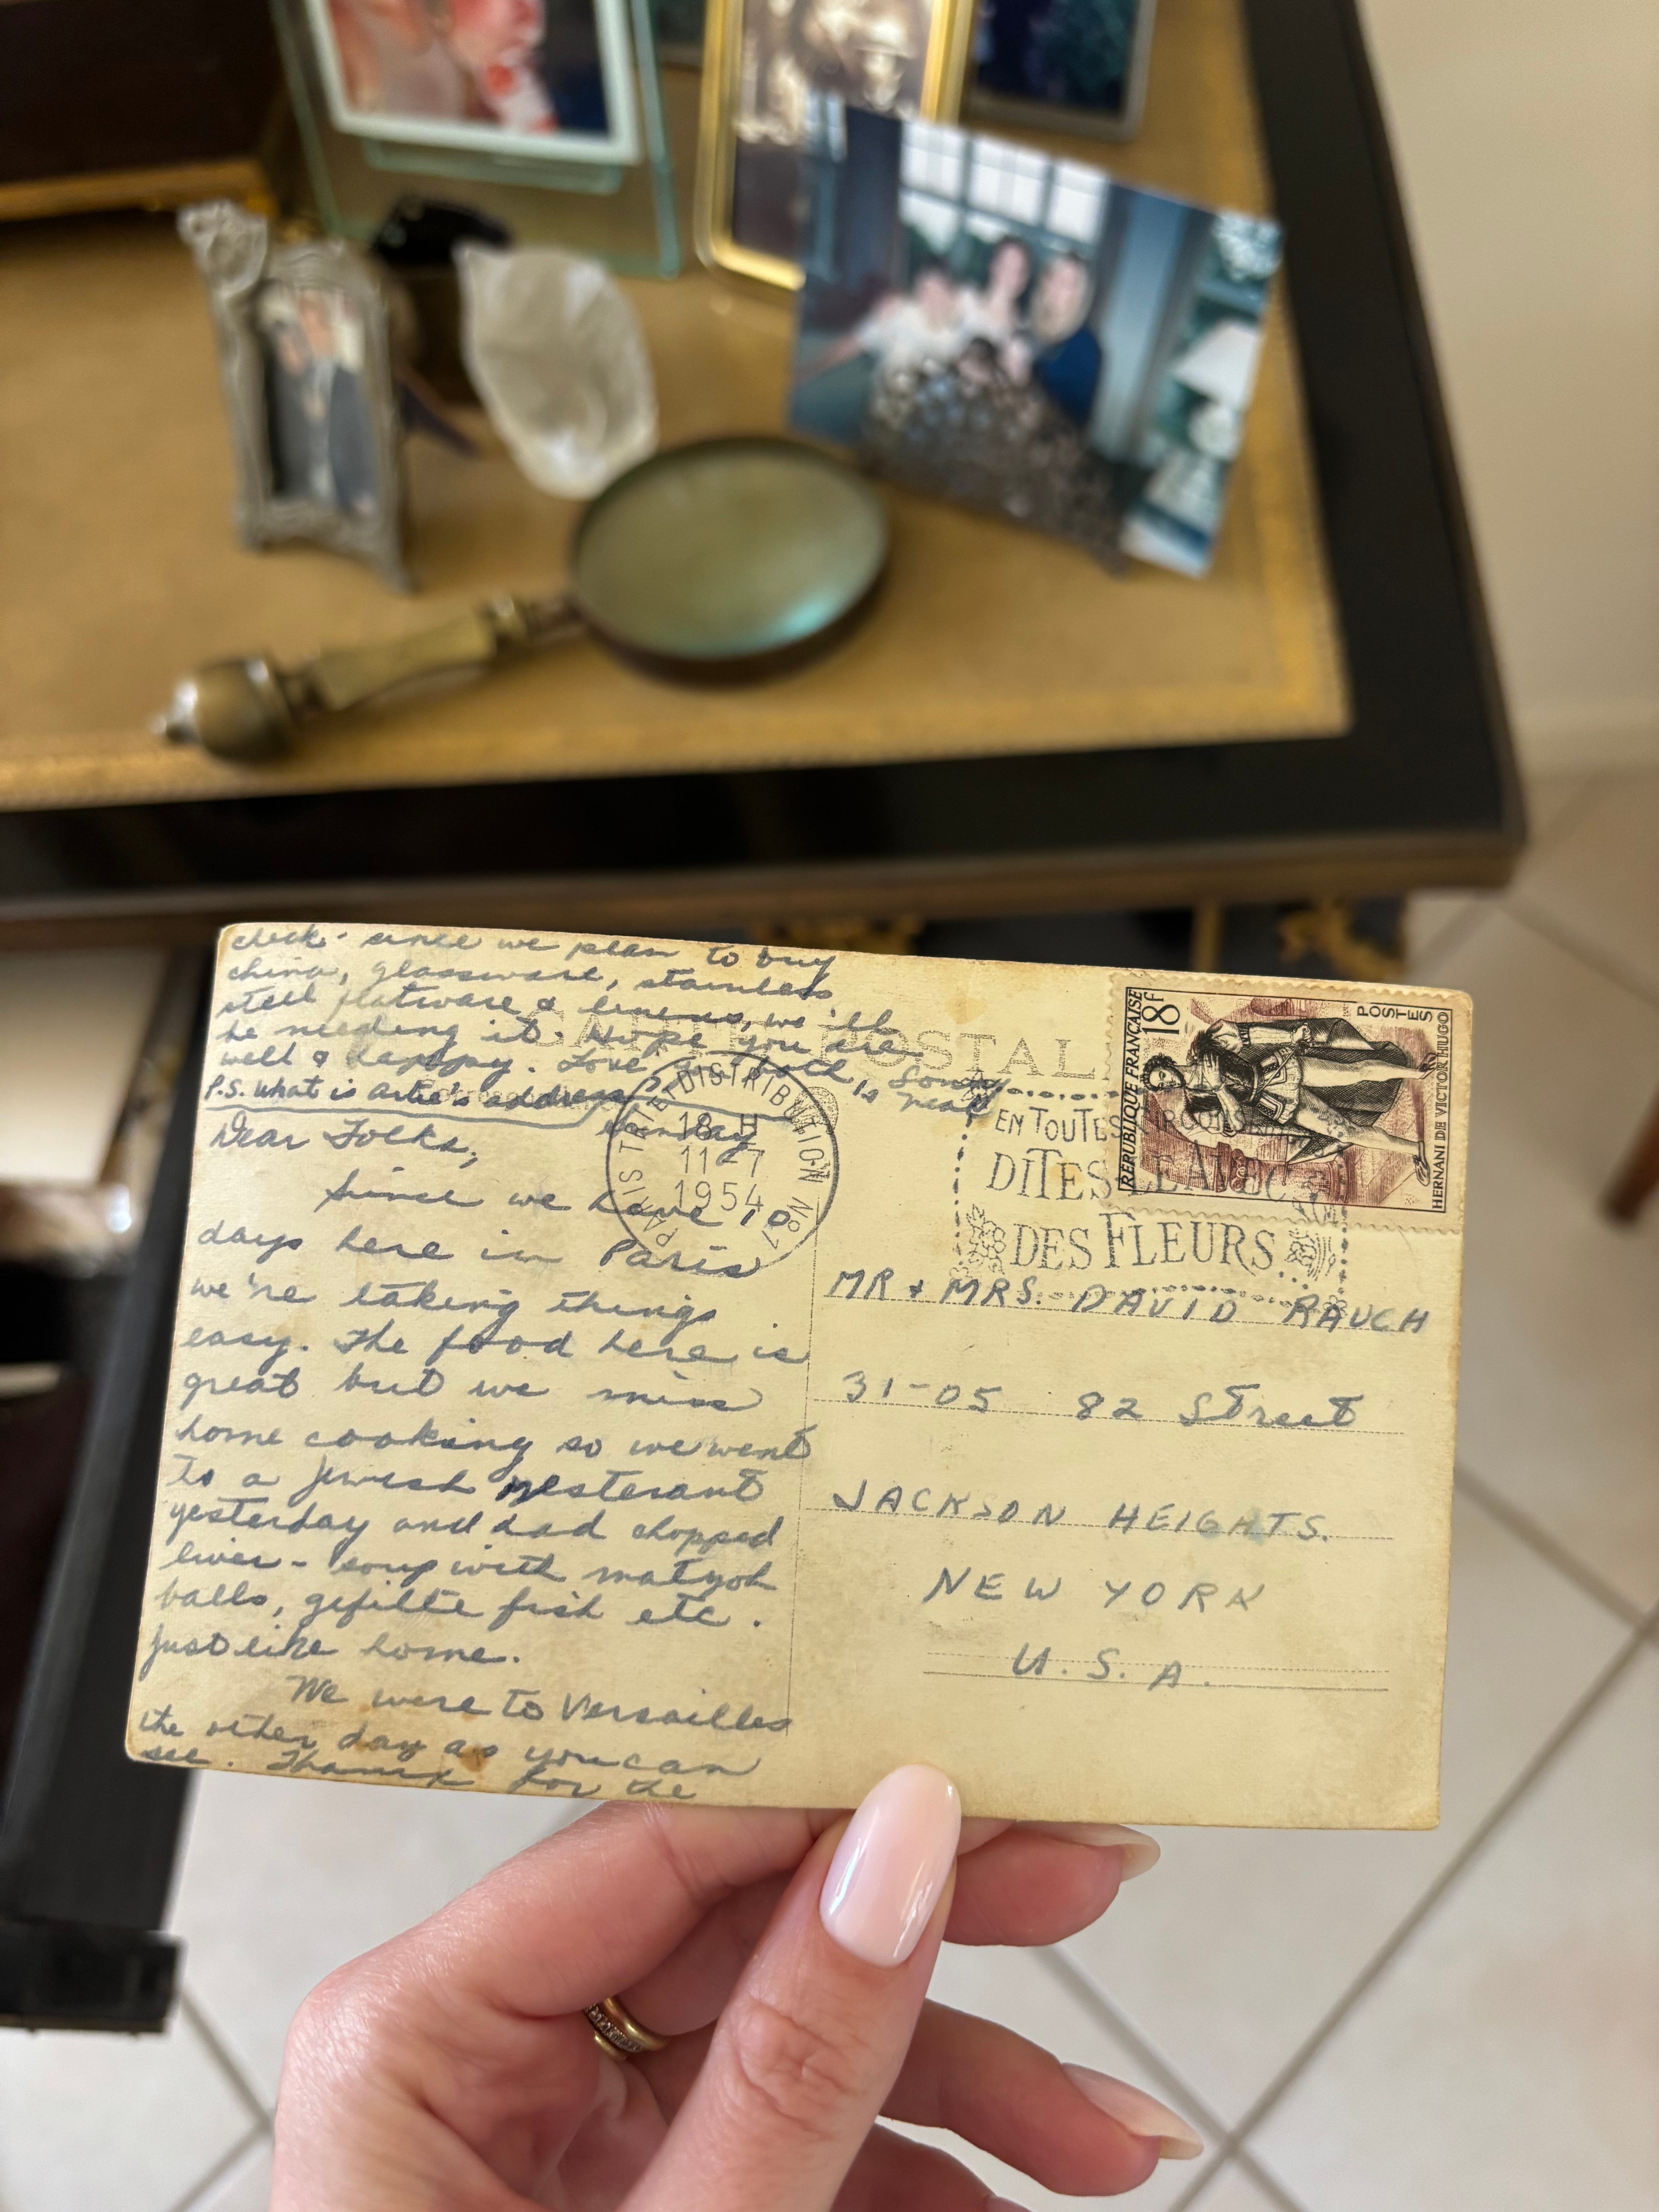 check - since we plan to buy
china, glassware, stainless
steel flatware & linens, we'll
be needing it. Hope you are
well & happy. Love
both, Sonny
P.S. What is Artie's address?
Sunday
Dear Folks,
Since we have 10
days here in Paris
we're taking things
easy. The food here is
great but we miss
home cooking so we went
to a Jewish resterant
yesterday and had chopped
liver - soup with matzoh
balls, gefilte fish etc.
Just like home.
We were to Versailles
the other day as you can
see. Thanx for the
CARTE POSTALE
PARIS TRI ET DISTRIBUTION No 7
18 H
11-7
1954
EN TOUTES CIRCONS
DITES LE AVEC
DES FLEURS
RÉPUBLIQUE FRANÇAISE
18f
POSTES
HERNANI DE VICTOR HUGO
MR & MRS. DAVID RAUCH
31-05 82 Street
JACKSON HEIGHTS.
NEW YORK
U.S.A.